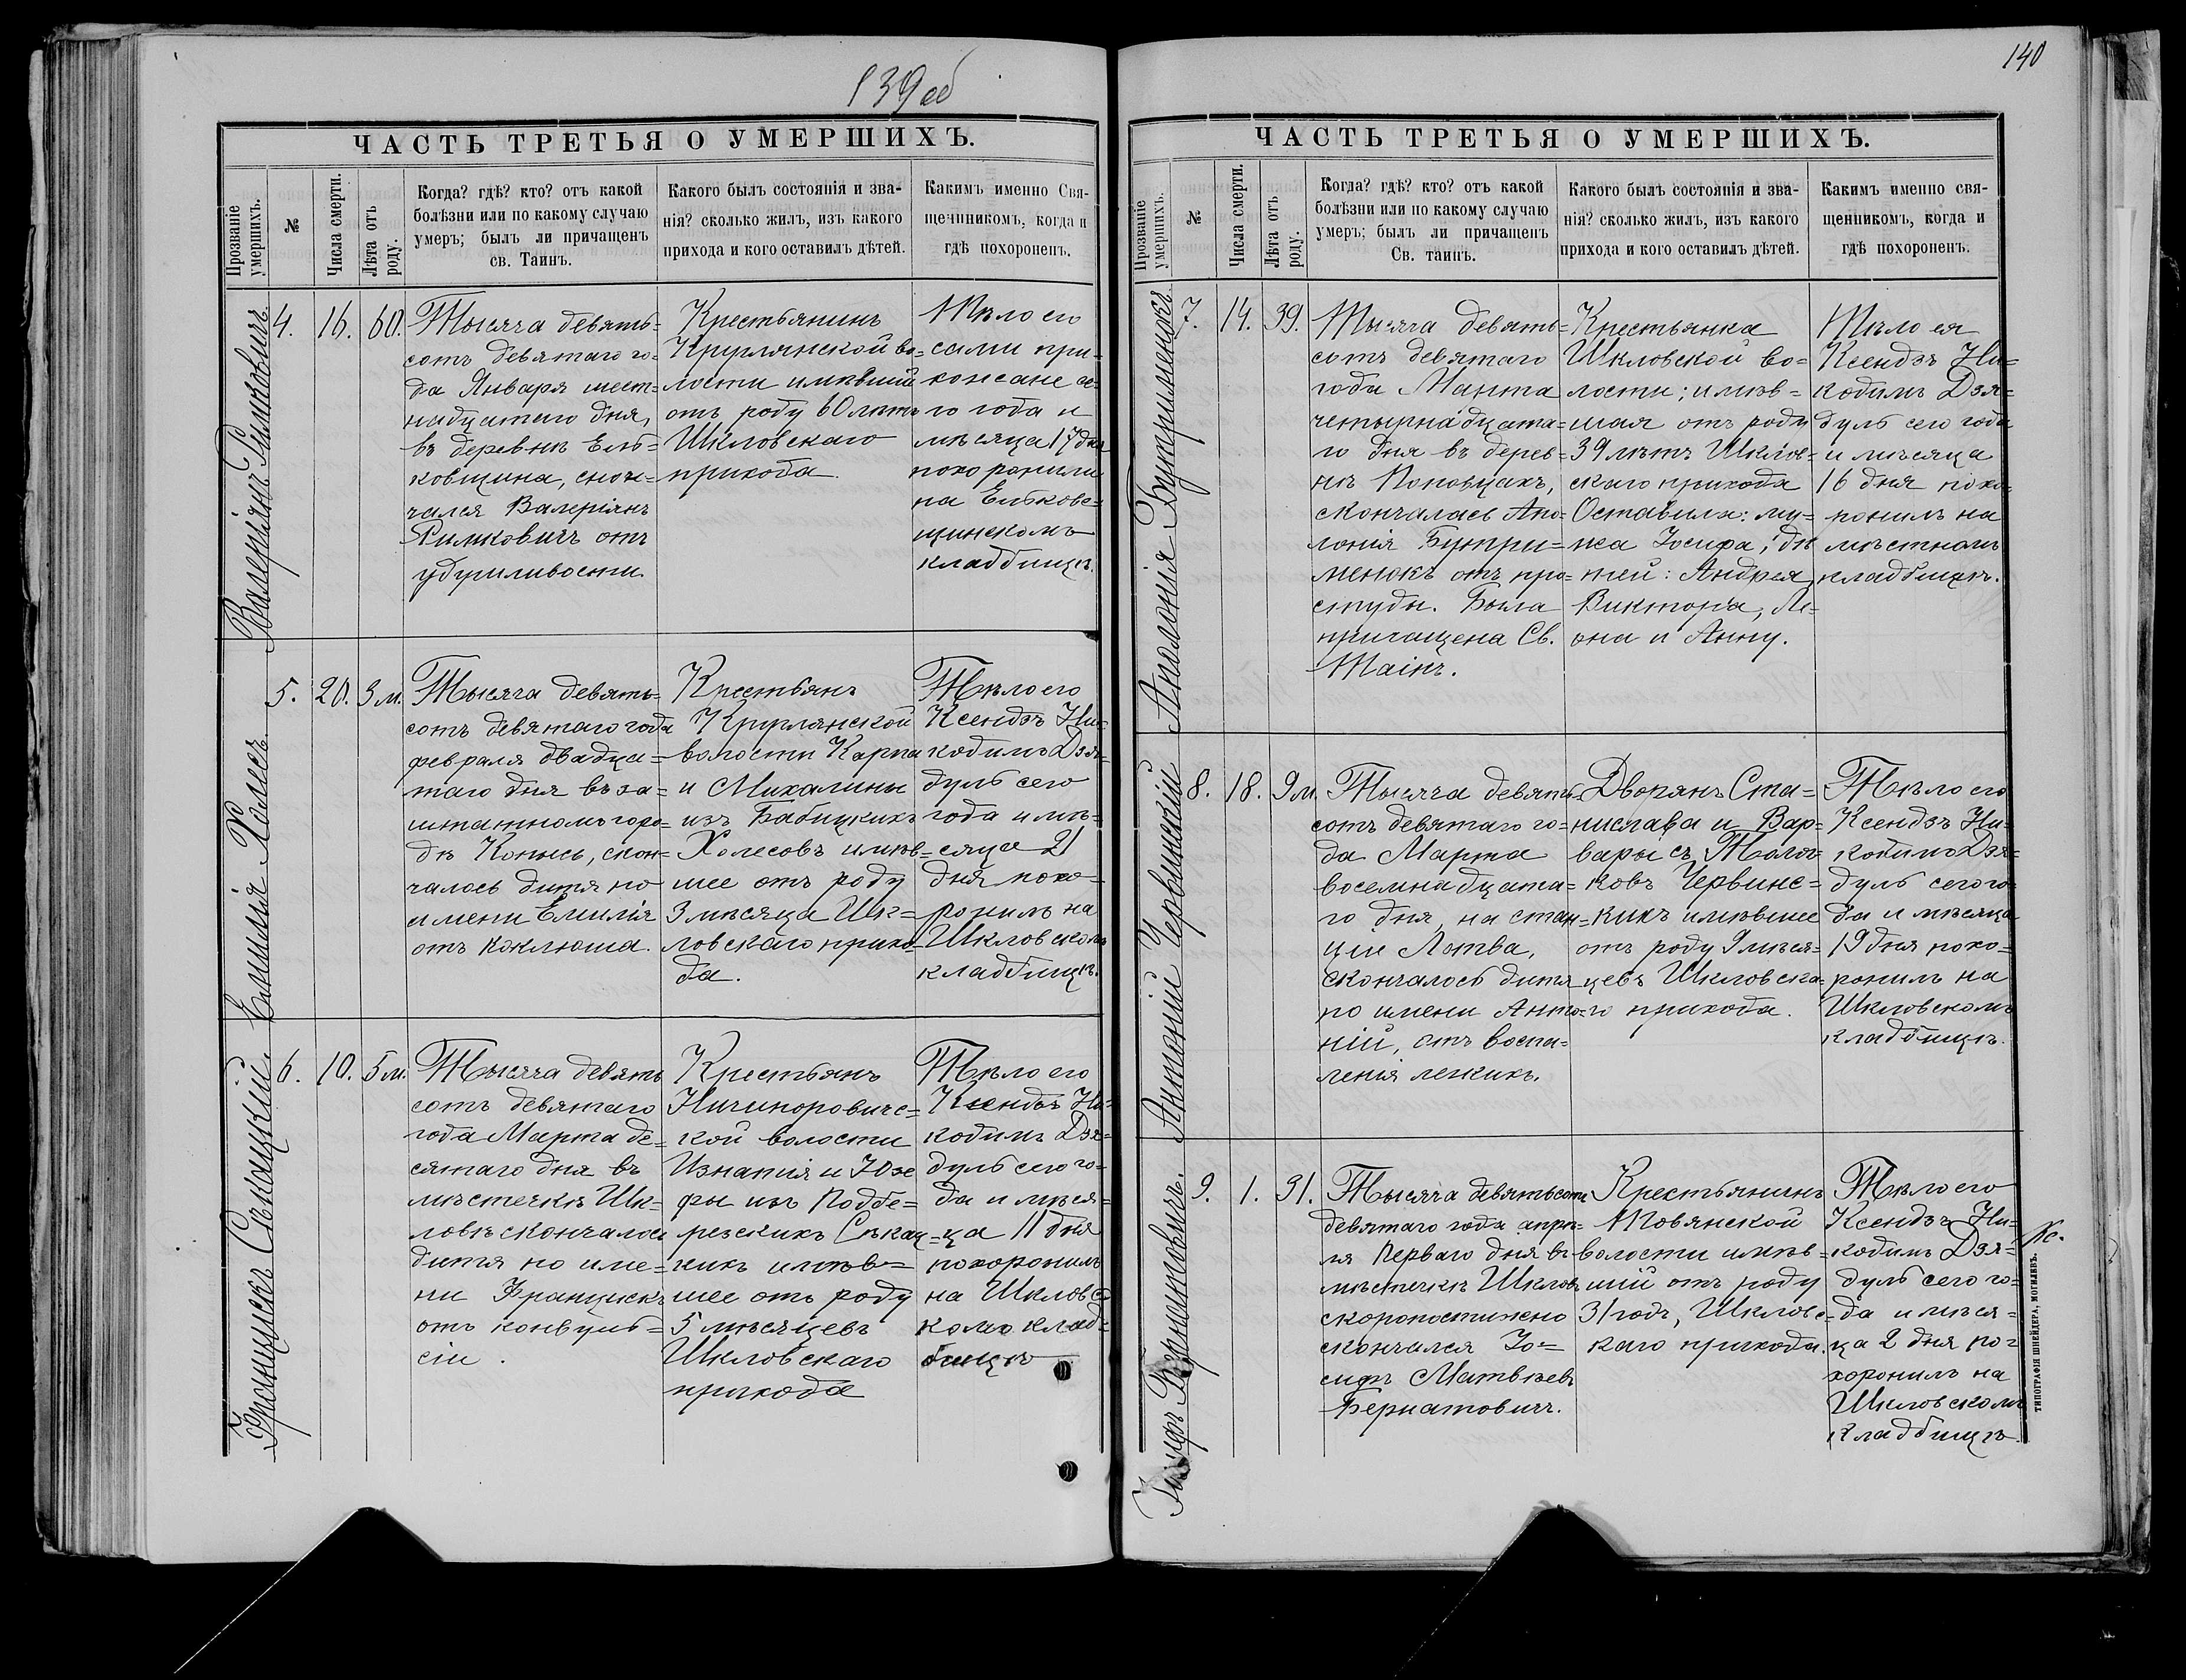 139 об
ЧАСТЬ ТРЕТЬЯ О УМЕРШИХЪ.
Прозваніе умершихъ.
№
Числа смерти.
Лѣта отъ роду.
Когда? гдѣ? кто? отъ какой
болѣзни или по какому случаю
умеръ; былъ ли причащенъ
св. Таинъ.
Какого былъ состоянія и зва-
нія? сколько жилъ, изъ какого
прихода и кого оставилъ дѣтей.
Какимъ именно Свя-
щенникомъ, когда и
гдѣ похороненъ.
Валеріянъ Римковичъ
4.
16.
60.
Тысяча девять=
сотъ девятаго го=
да Января шест=
надцатаго дня,
въ деревнѣ Ель=
ковщина, скон=
чался Валеріянъ
Римковичъ отъ
удушливости.
Крестьянинъ
Круглянской во=
лости имѣвшій
отъ роду 60 лѣтъ
Шкловскаго
прихода.
Тѣло его
сами при=
хожане се=
го года и
мѣсяца 17 дня
похоронили
на Елькове=
щинскомъ
кладбищѣ.
Емилія Холесъ
5.
20.
3 м.
Тысяча девять=
сотъ девятаго года
февраля двадца=
таго дня въ за=
штатномъ горо=
дѣ Копысь, скон=
чалось дитя по
имени Емилія
отъ коклюша.
Крестьянъ
Круглянской
волости Карпа
и Михалины
изъ Бабицкихъ
Холесовъ имѣв=
шее отъ роду
3 мѣсяца Шк=
ловскаго прихо=
да.
Тѣло его
Ксендзъ Ни=
кодимъ Дзя=
дуль сего
года и мѣ=
сяца 21
дня похо=
ронилъ на
Шкловскомъ
кладбищѣ.
Францискъ Сѣкацкій
6.
10.
5 м.
Тысяча девять
сотъ девятаго
года Марта де=
сятаго дня въ
мѣстечкѣ Шк=
ловѣ скончалось
дитя по име=
ни Францискъ
отъ конвуль=
сіи.
Крестьянъ
Ничипоровичс=
кой волости
Игнатія и Юзе
фы изъ Подбе=
резскихъ Сѣкац=
кихъ имѣв=
шее отъ роду
5 мѣсяцевъ
Шкловскаго
прихода
Тѣло его
Ксендзъ Ни=
кодимъ Дзя=
дуль сего го=
да и мѣся=
ца 11 дня
похоронилъ
на Шкловс=
комъ клад=
бищѣ
140
ЧАСТЬ ТРЕТЬЯ О УМЕРШИХЪ.
Прозваніе умершихъ.
№
Числа смерти.
Лѣта отъ роду.
Когда? гдѣ? кто? отъ какой
болѣзни или по какому случаю
умеръ; былъ ли причащенъ
Св. таинъ.
Какого былъ состоянія и зва-
нія? сколько жилъ, изъ какого
прихода и кого оставилъ дѣтей.
Какимъ именно свя-
щенникомъ, когда и
гдѣ похороненъ.
Аполонія Бутрименюкъ
7.
14.
39.
Тысяча девять=
сотъ девятаго
года Марта
четырнадцата=
го дня въ дерев=
нѣ Поповцахъ,
скончалась Апо=
лонія Бутри=
менюкъ отъ про=
студы. Была
причащена Св.
Таінъ.
Крестьянка
Шкловской во=
лости; имѣв=
шая отъ роду
39 лѣтъ Шклов=
скаго прихода
Оставила: му=
жа Іосифа; дѣ
тей: Андрея,
Виктора, Ле=
она и Анну.
Тѣло ея
Ксендзъ Ни=
кодимъ Дзя=
дуль сего года
и мѣсяца
16 дня похо=
ронилъ на
мѣстномъ
кладбищѣ.
Антоній Червинскій
8.
18.
9 м.
Тысяча девять
сотъ девятаго го=
да Марта
восемнадцата=
го дня, на стан=
ціи Лотва,
скончалось дитя
по имени Анто=
ній, отъ воспа=
ленія легкихъ.
Дворянъ Ста=
нислава и Вар=
вары съ
Червинс=
кихъ имѣвшее
отъ роду 9 мѣся=
цевъ Шкловска=
го прихода.
Тѣло его
Ксендзъ Ни=
кодимъ Дзя=
дуль сего го=
да и мѣсяца
19 дня похо=
ронилъ на
Шкловскомъ
кладбищѣ.
Іосифъ Бернатовичъ.
9.
1.
31.
Тысяча девятьсотъ
девятаго года апрѣ=
ля перваго дня въ
мѣстечкѣ Шкловѣ
скоропостижно
скончался Іо=
сифъ Матвѣевъ
Бернатовичъ.
Крестьянинъ
волости имѣв=
шій отъ роду
31 годъ, Шкловс=
каго прихода.
Тѣло его
Ксендзъ Ни=
кодимъ Дзя=
дуль сего го=
да и мѣся=
ца 2 дня по=
хоронилъ на
Шкловскомъ
кладбищѣ.
Кс.
ТИПОГРАФІЯ ШНЕЙДЕРА, МОГИЛЕВЪ.